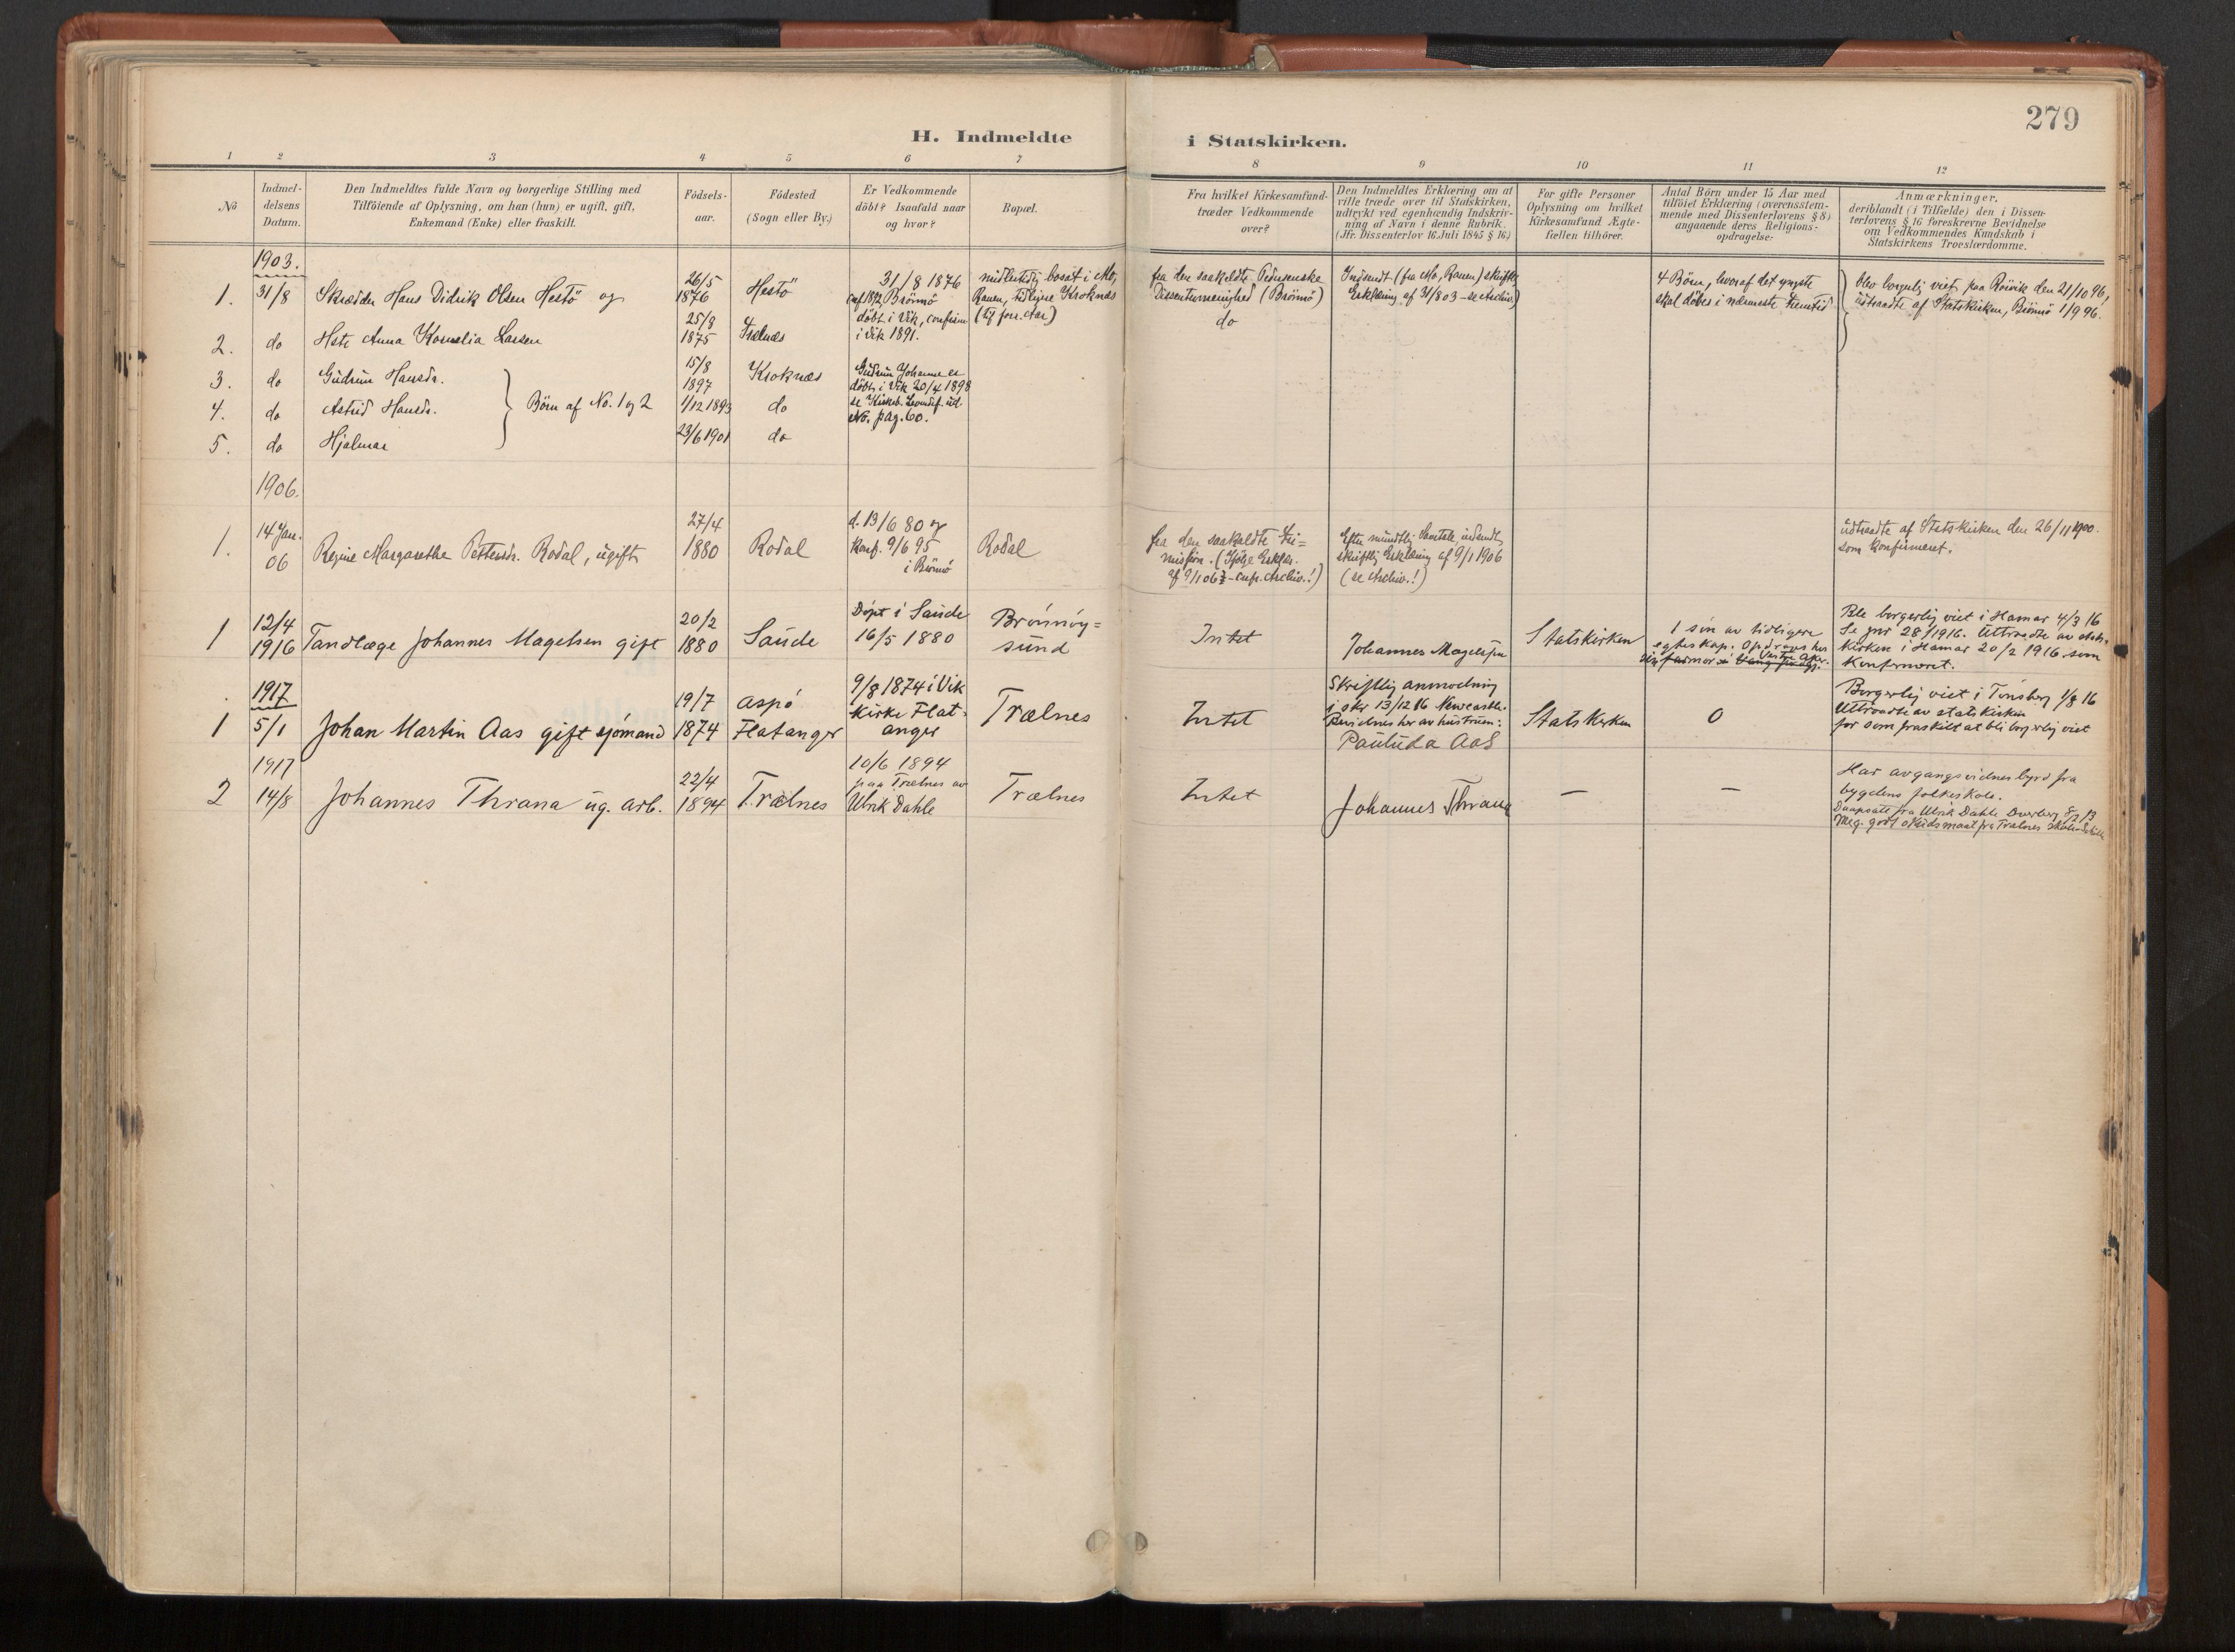 279
H. Indmeldte i Statskirken.
1 2 3 4 5 6 7 8 9 10 11 12
No
Indmel-
delsens
Datum.
Den Indmeldtes fulde Navn og borgerlige Stilling med
Tilföiende af Oplysning, om han (hun) er ugift, gift,
Enkemand (Enke) eller fraskilt.
Födsels-
aar.
Födested
(Sogn eller By.)
Er Vedkommende
döbt? Isaafald naar
og hvor?
Bopæl.
Fra hvilket Kirkesamfund
træder Vedkommende
over?
Den Indmeldtes Erklæring om at
ville træde over til Statskirken,
udtrykt ved egenhændig Indskriv-
ning af Navn i denne Rubrik.
(Jfr. Dissenterlov 16. Juli 1845 § 16.)
For gifte Personer
Oplysning om hvilket
Kirkesamfund Ægte-
fællen tilhörer.
Antal Börn under 15 Aar med
tilföiet Erklæring (overensstem-
mende med Dissenterlovens § 8)
angaaende deres Religions-
opdragelse.
Anmærkninger,
deriblandt (i Tilfælde) den i Dissen-
terlovens § 16 foreskrevne Bevidnelse
om Vedkommendes Kundskab i
Statskirkens Troeslærdomme.
1903.
1. 31/8 Skrædder Hans Didrik Olsen Hestö og
26/5
1876
Hestö
31/8 1876
conf 1892 Brönnö
midlertidig bosat i Mo,
Ranen, tidligere Kroknæs
fra den saakaldte Pedersenske
Dissentermenighed (Brönnö)
Indsendt (fra Mo, Ranen) skriftlig
Erklæring af 31/8 03 - se Archiv.)
4 Börn, hvoraf det yngste
skal döbes i nærmeste Fremtid
blev borgerlig viet paa Röivik den 21/10 96,
udtraadte af Statskirken, Brönnö 1/9 96.
2. do Hstr Anna Kornelia Larsen
25/8
1875
Trælnæs
döbt i Vik, confirm
i Vik 1891.
do
3. do Gudrun Hansdr.
15/8
1897
Kroknæs
Gudrun Johanne er
döbt i Vik 20/4 1898
4. do Astrid Hansdr.
Börn af No. 1 og 2
1/12 1893
do
No. pag. 60.
5. do Hjalmar
23/6 1901
do
1906.
1. 14 Jan.
06
Regine Margarethe Pettersdr. Rodal, ugift
27/4
1880
Rodal
d. 13/6 80 og
Konf. 9/6 95
i Brönnö
Rodal
fra den saakaldte Fri=
mission. (Ifölge Erklær.
af 9/1 06
Efter mundtlig Samtale indsendt
skriftlig Erklæring af 9/1 1906
(se Archiv.!)
udtraadte af Statskirken den 26/11 1900.
som konfirmeret.
1 12/4
1916
Tandlæge Johannes Magelsen gift
20/2
1880
Saude
Döpt i Saude
16/5 1880
Brönnöy=
sund
Intet
Johannes Magelssen
Statskirken
1 sön av tidligere
egteskap. Opdrages hos
sin farmor i Vestre Aker.
Ble borgerlig viet i Hamar 4/3 16
Se jnr 28/1916. Uttraadte av stats-
kirken i Hamar 20/2 1916 som
Konfirmeret.
1917
1 5/1 Johan Martin Aas gift sjömand
19/7
1874
Aspö
Flatanger
9/8 1874 i Vik
Kirke Flat-
anger
Trælnes
Intet
Skriftlig anmodning
i skr 13/12 16 Newcastle.
Bevidnes her av hustruen:
Paulida Aas
Statskirken
0
Borgerlig viet i Tönsberg 1/8 16
Uttraadte av statskirken
for som fraskilt at bli borgerlig viet
1917
2 14/8 Johannes Thrana ug. arb.
22/4
1894
Trælnes
10/6 1894
paa Trælnes av
Ulrik Dahle
Trælnes
Intet
Johannes Thrana
—
—
Har avgangsvidnesbyrd fra
bygdens folkeskole.
Daapsatt fra Ulrik Dahle Dverberg 8/2 13
Meg. godt skudsmaal fra Trælnes